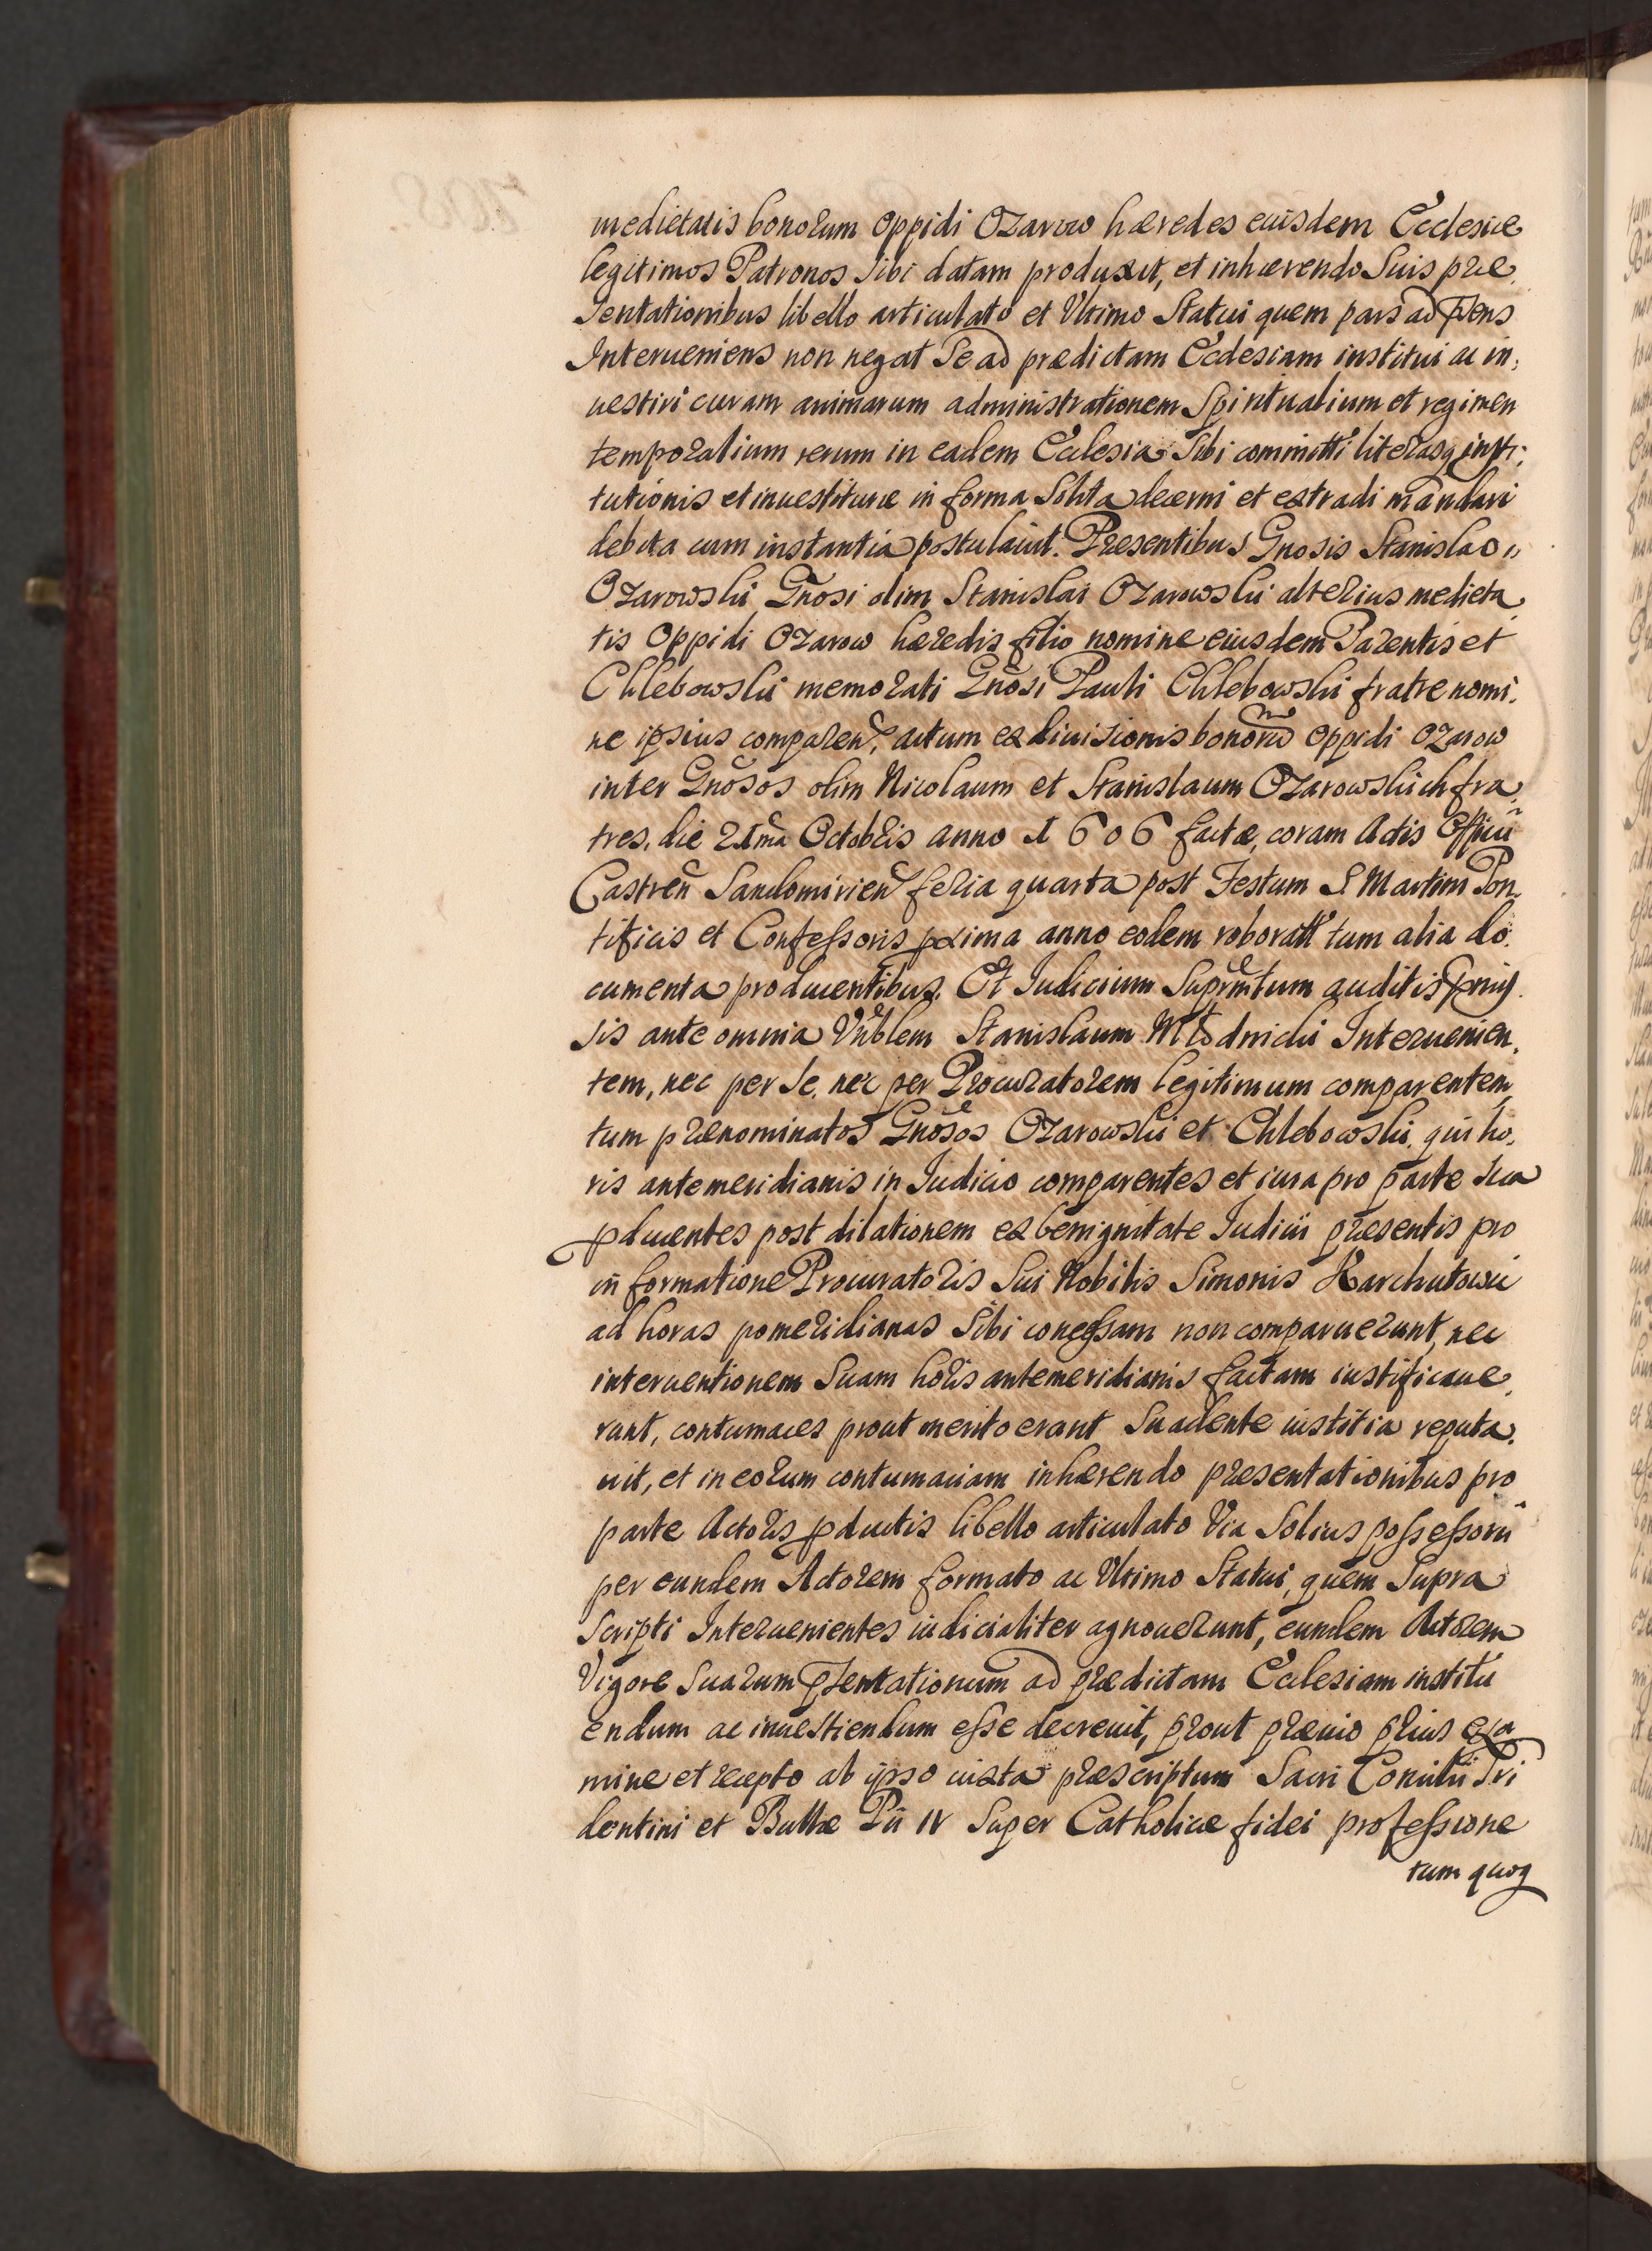 medietatis bonorum oppidi Ozarow hæredes eiusdem Ecclesiæ
legitimos Patronos sibi datam produxit, et inhærendo suis præ,
sentationibus libello articulato et Vltimo Statui quem pars ad pñs
Interueniens non negat se ad prædictam Ecclesiam institui ac in,
uestiri curam animarum administrationem Spiritualium et regimen
temporalium rerum in eadem Ecclesia sibi committi literasq insti,
tutionis et inuestituræ in forma solita decerni et extradi mandari
debita cum instantia postulauit. Præsentibus Gnosis Stanislao
Ozarowski Gnosi olim Stanislai Ozarowski alterius medieta,
tis Oppidi Ozarow hæredis filio nomine eiusdem Parentis et
Chlebowski memorati Gnosi Pauli Chlebowski fratre nomi,
ne ipsius comparen, actum exdiuisionis bonorũ Oppidi Ozarow
inter Gnosos olim Nicolaum et Stanislaum Ozarowskich fra,
tres, die 21ma Octobris anno 1606 factæ, coram Actis Officii
Castren Sandomirien feria quarta post Festum S. Martini Pon,
tificis et Confessoris pxima anno eodem roboratt tum alia do,
cumenta producentibus. Et Iudicium Suprmtum auditis pmis,
sis ante omnia Vnblem Stanislaum Młodnicki Interuenien,
tem, nec per se, nec per Procuratorem legitimum comparentem
tum prænominatos Gnosos Ozarowski et Chlebowski, qui ho,
ris antemeridianis in Iudicio comparentes et iura pro parte sua
pducentes post dilationem ex benignitate Iudicii præsentis pro
informatione Procuratoris sui Nobilis Simonis Karchutowic
ad horas pomeridianas sibi concessam non comparuerunt, nec
interuentionem suam horis antemeridianis factam iustificaue,
runt, contumaces prout merito erant suadente iustitia reputa,
uit, et in eorum contumaciam inhærendo præsentationibus pro
parte Actoris pductis libello articulato Via solius possessorii
per eundem Actorem formato ac Vltimo Statui, quem supra
scripti Interuenientes iudicialiter agnouerunt, eundem Actorem
Vigore suarum pñsentationum ad prædictam Ecclesiam institu
endum ac inuestiendum esse decreuit, prout præuio prius exa
mine et recepto ab ipso iuxta præscriptum Sacri Concilii Tri
dentini et Bullæ Pii IV super Catholicæ fidei professione
tum quoq